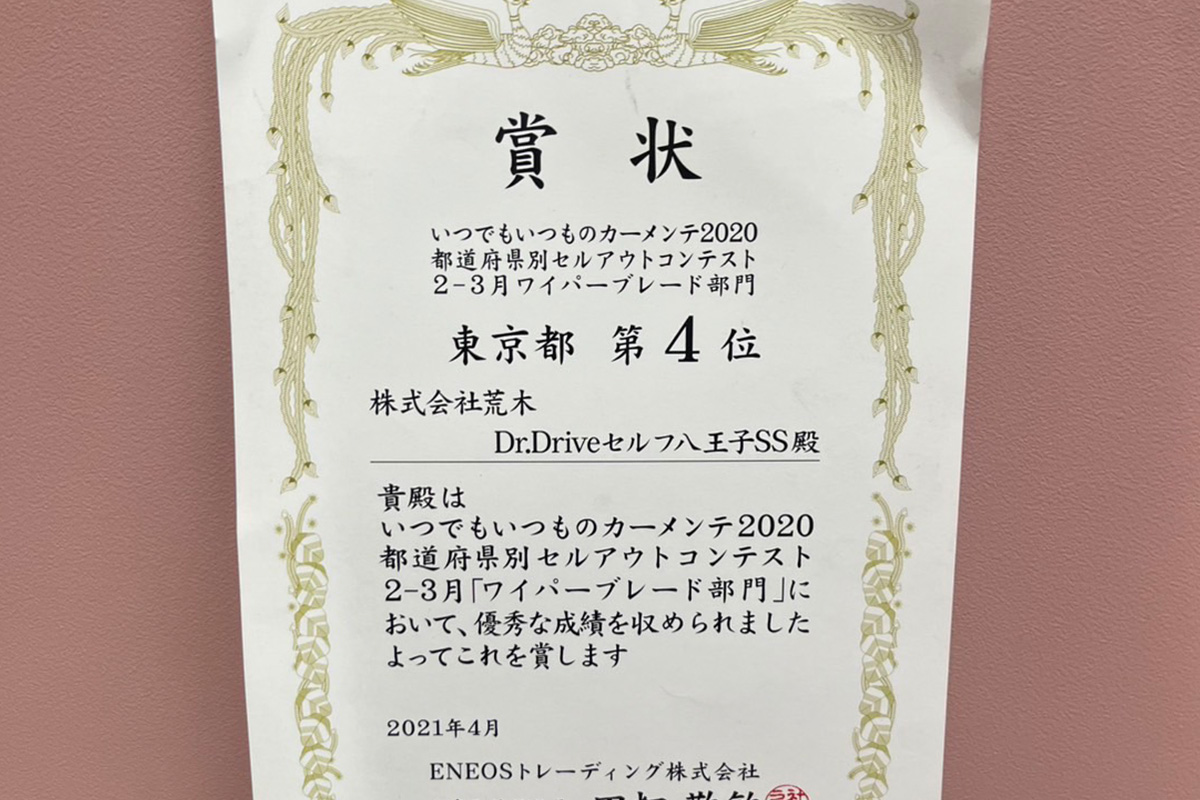 賞状
いつでもいつものカーメンテ2020
都道府県別セルアウトコンテスト
2-3月ワイパーブレード部門
東京都 第4位
株式会社荒木
Dr.Driveセルフ八王子SS殿
貴殿は
いつでもいつものカーメンテ2020
都道府県別セルアウトコンテスト
2-3月「ワイパーブレード部門」に
おいて、優秀な成績を収められました
よってこれを賞します
2021年4月
ENEOSトレーディング株式会社